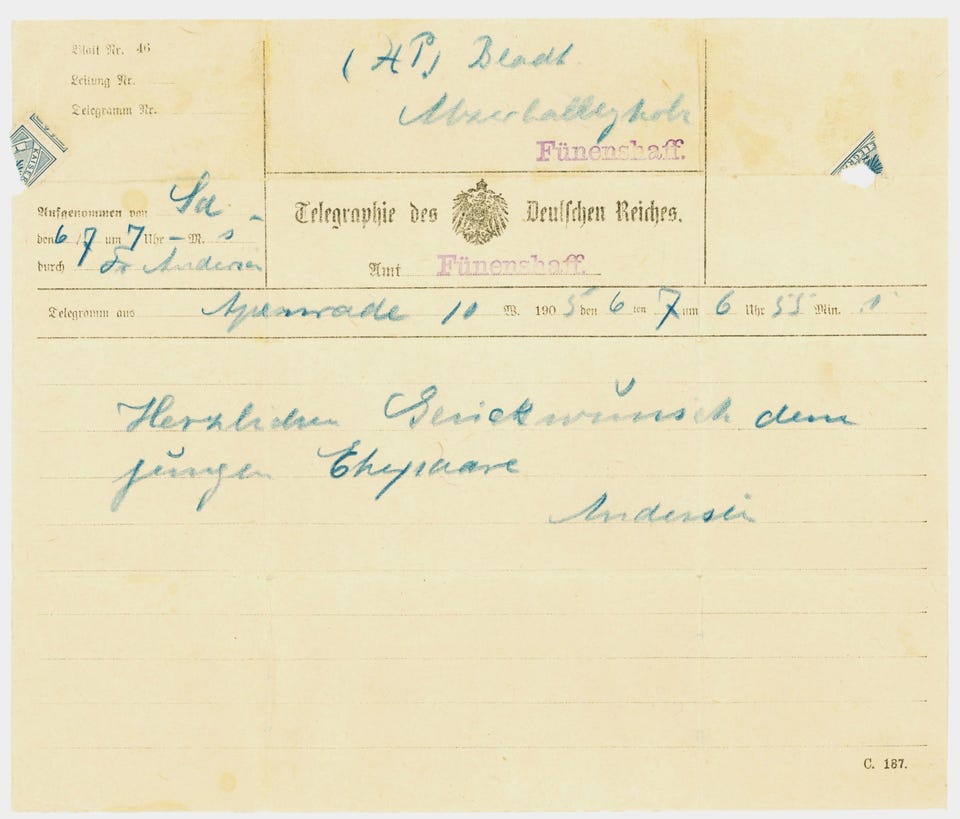 Blatt Nr. 46
Leitung Nr.
Telegramm Nr.
(HP) Bladt
Fünenshaff.
KAISE
TELEGR
Aufgenommen von Sd
den 6/7 um 7 Uhr – M. s
durch Fr Andersen
Telegraphie des Deutschen Reiches.
Amt Fünenshaff.
Telegramm aus Apenrade 10 W. 1905 den 6 ten 7 um 6 Uhr 55 Min.
Herzlichen Glückwünsch dem
jungen Ehepaare
Andersen
C. 187.